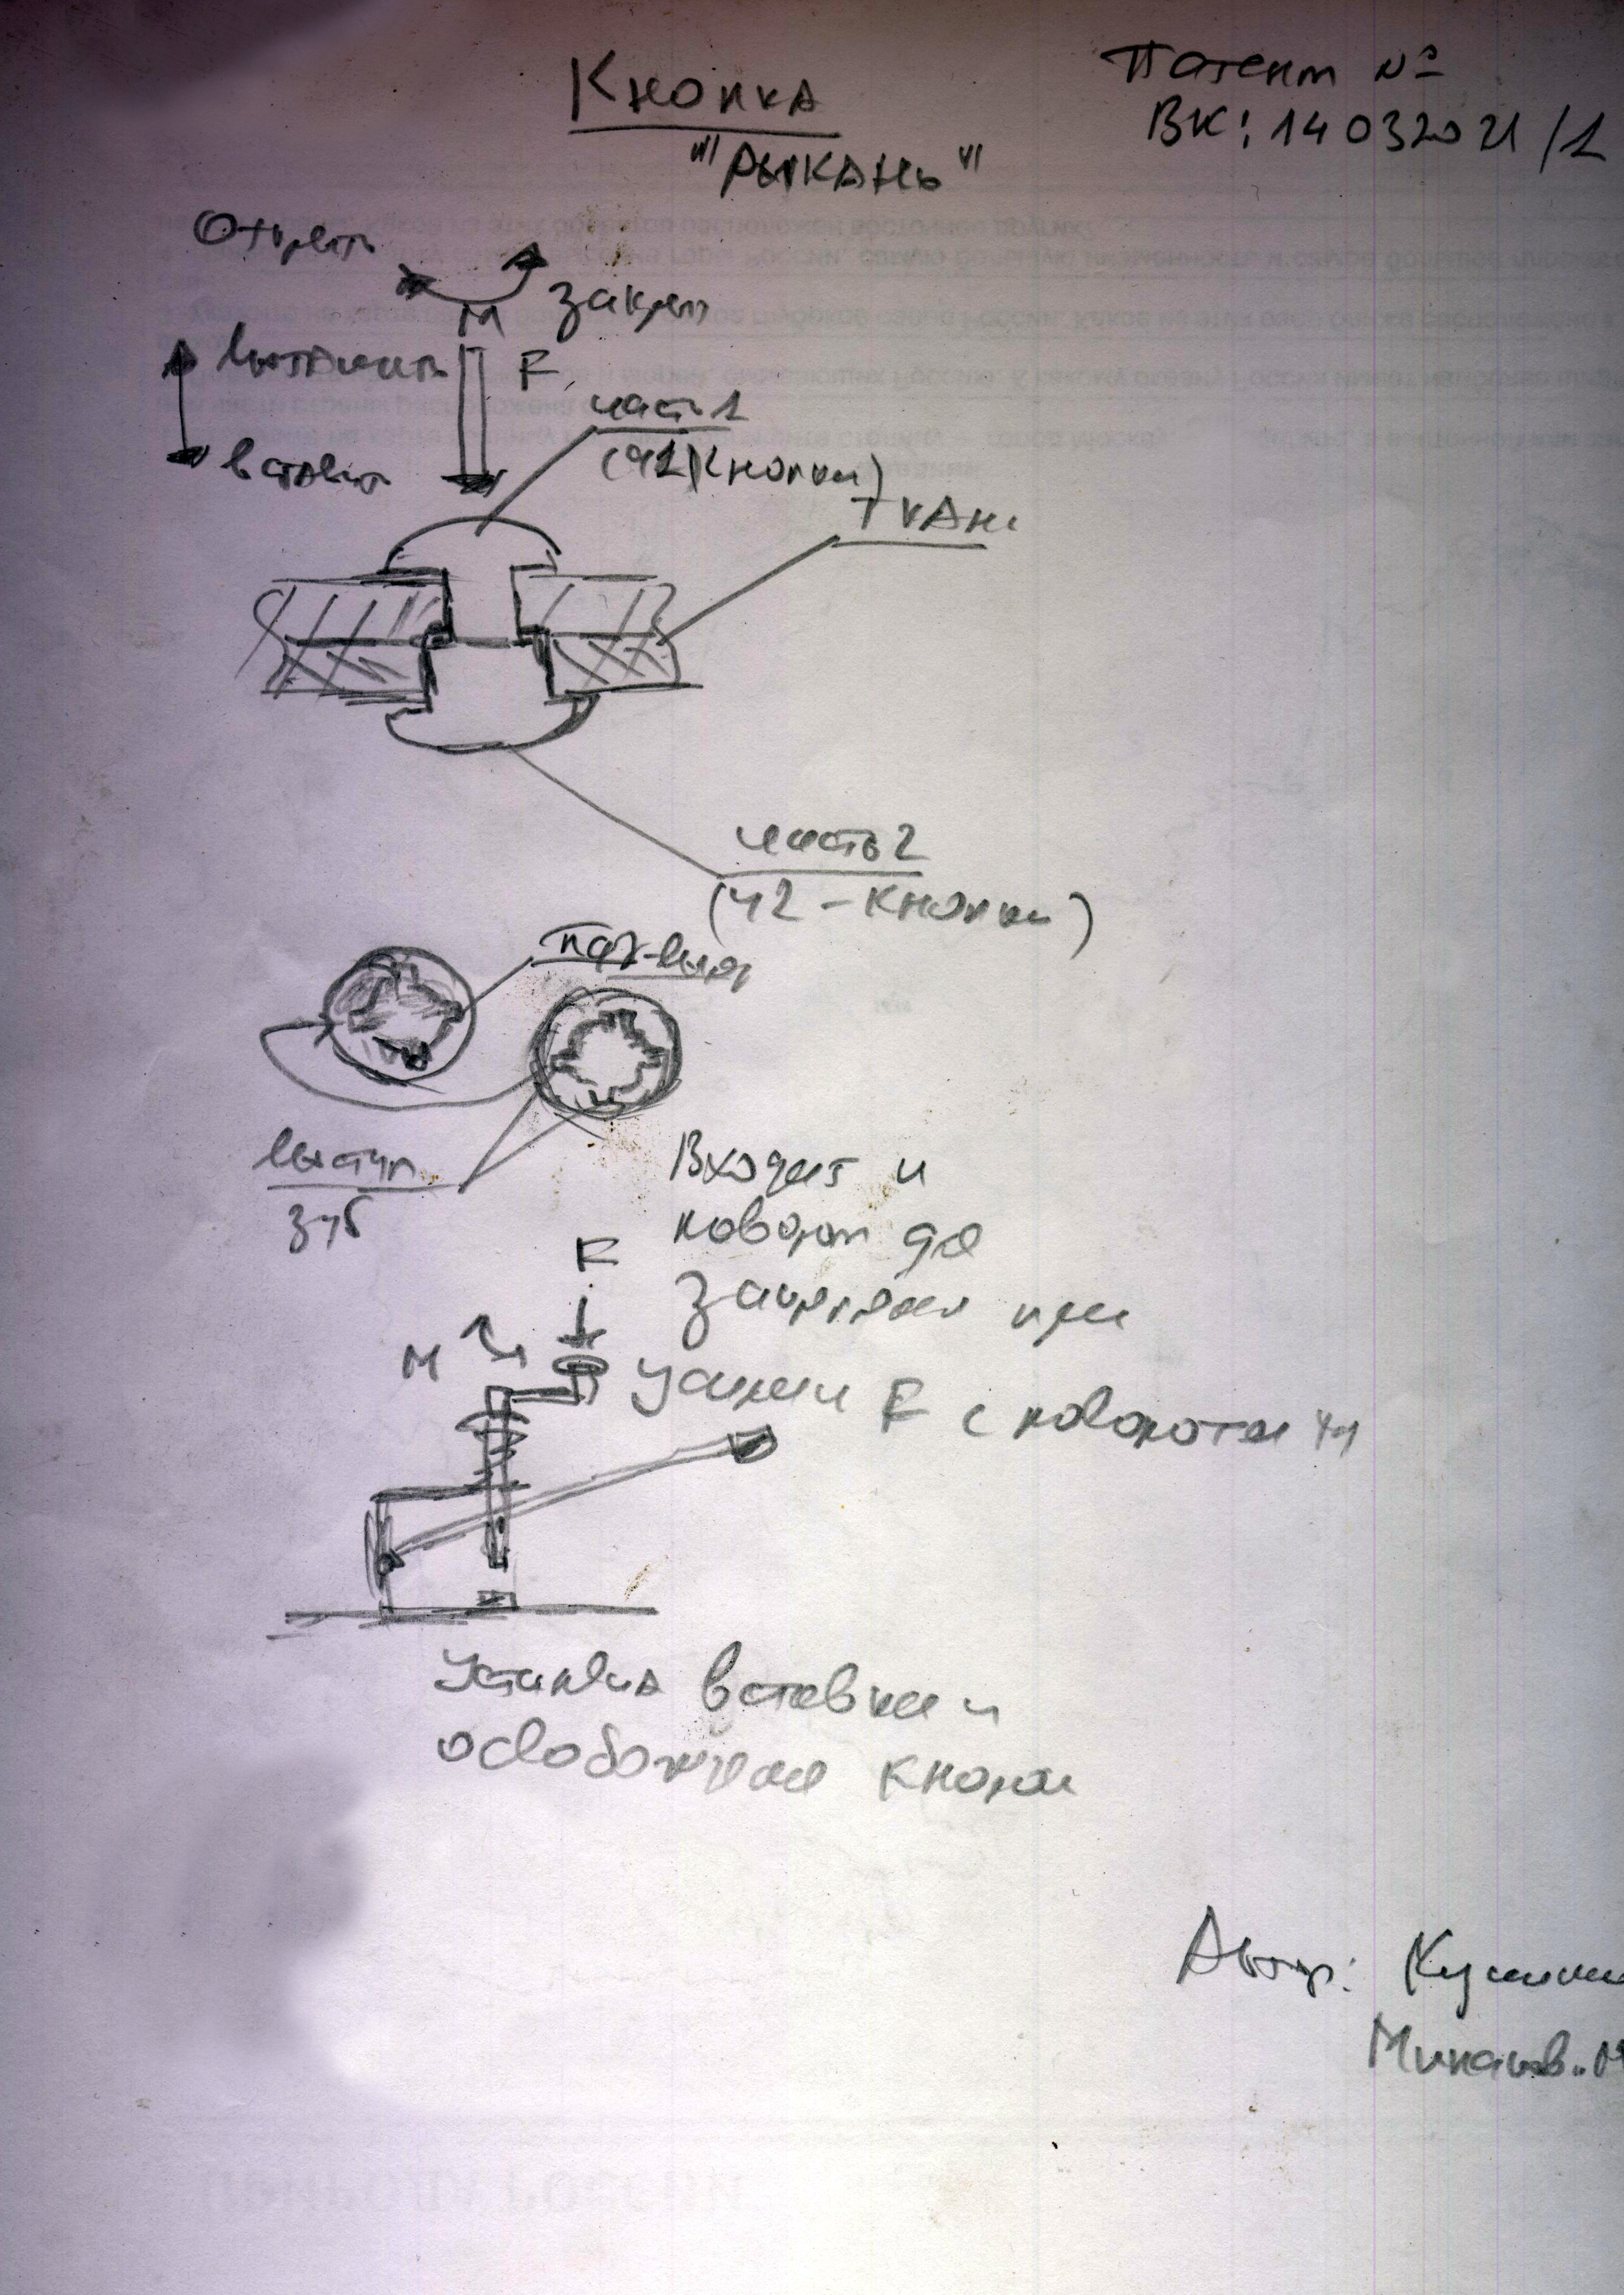 Кнопка
"Рыкань"
Патент №
ВК: 14032021/1
Открыть
закреп
М
вытащить
F
вставит
часть 1
(ч1 кнопки)
ткань
часть 2
(ч2 - кнопки)
паз-выем
выступ
зуб
Входит и
поворот до
F
М
усилии F с поворотом ч1
вставки и
освобождения кнопки
Автор: